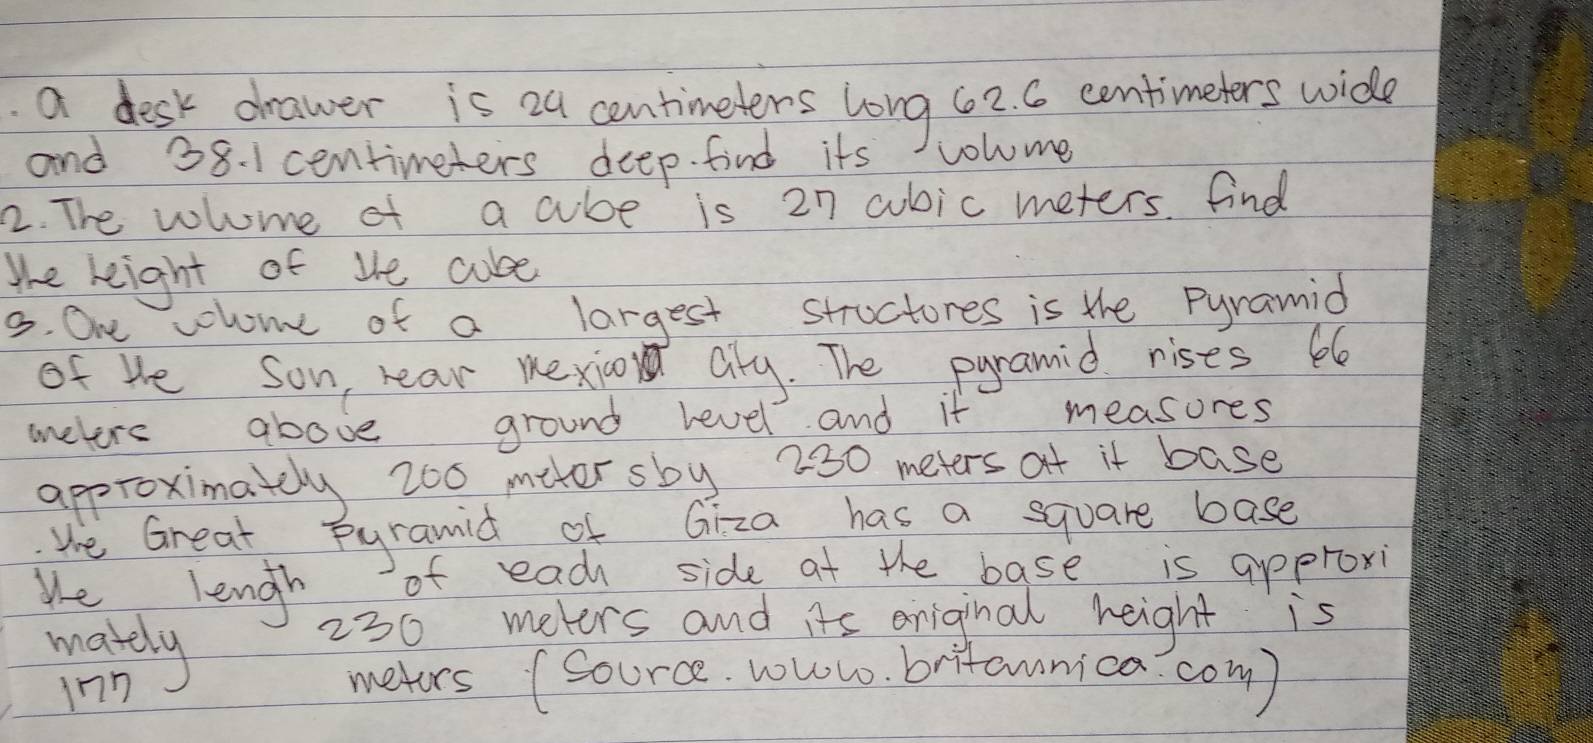 . a desk drawer is 24 centimeters long 62.6 centimeters wide
and 38.1 centimeters deep. find its volume
2. The volume of a cube is 27 cubic meters. find
the height of the cube
3. One volume of a largest structures is the Pyramid
of the Son, near mexico City. The pyramid rises 66
meters above ground level and it measures
approximately 200 meters by 230 meters at it base
. the Great Pyramid of Giza has a square base
the lengh of each side at the base is approxi
mately 230 meters and its original height is
177 meters (Source. www.britannica.com)